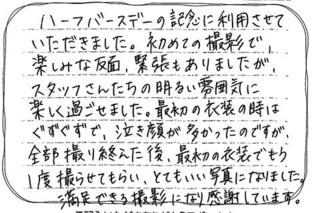 ハーフバースデーの記念に利用させて
いただきました。初めての撮影で、
楽しみな反面、緊張もありましたが、
スタッフさんたちの明るい雰囲気に
楽しく過ごせました。最初の衣装の時は
ぐずぐずで、泣き顔が多かったのですが、
全部撮り終えた後、最初の衣装でもう
1度撮らせてもらい、とてもいい写真になりました。
満足できる撮影になり感謝しています。